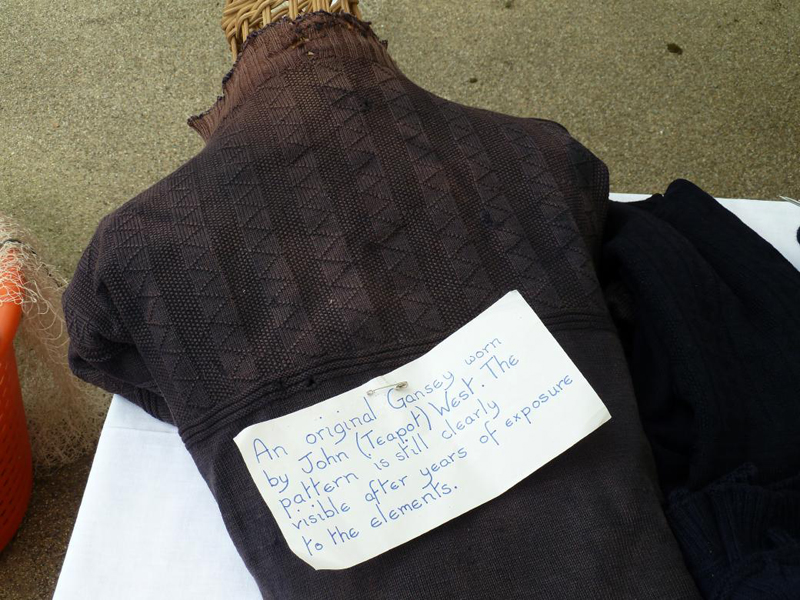 An original Gansey worn
by John (Teapot) West. The
pattern is still clearly
visible after years of exposure
to the elements.